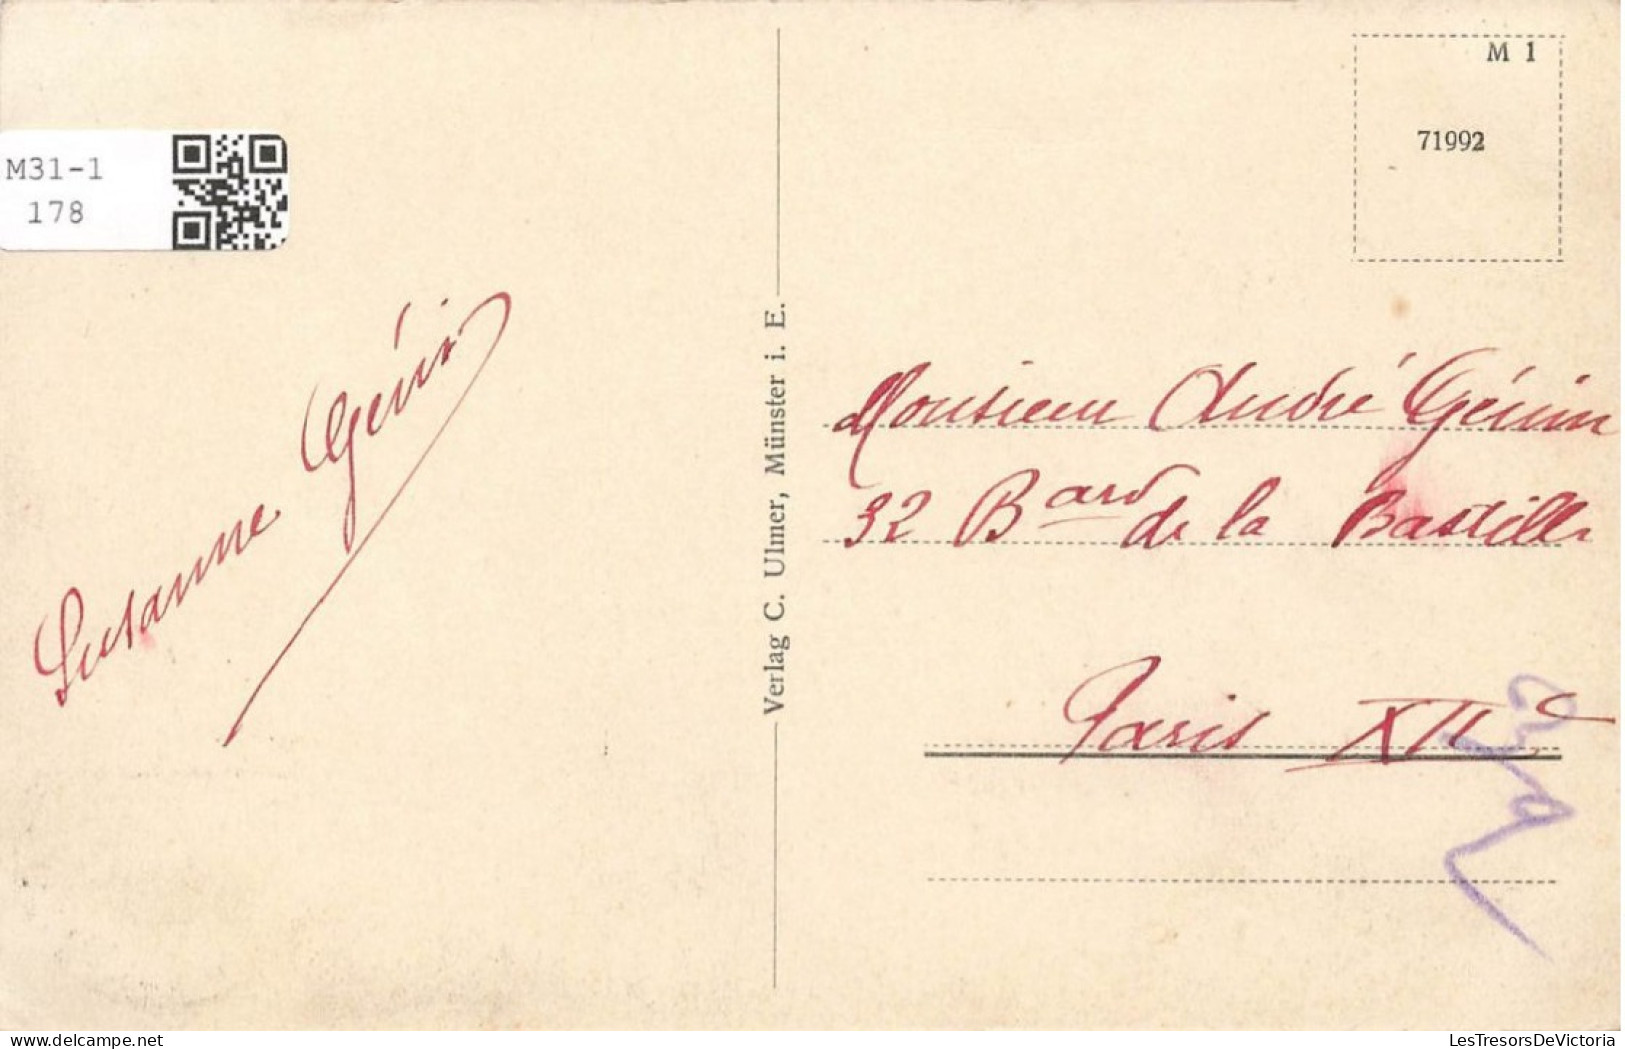 M 1
71992
M31-1
178
Susanne Génin
Verlag C. Ulmer, Münster i. E.
Monsieur André Génin
32 Bard de la Bastille
Paris XIIe
delcampe.net
LesTresorsDeVictoria